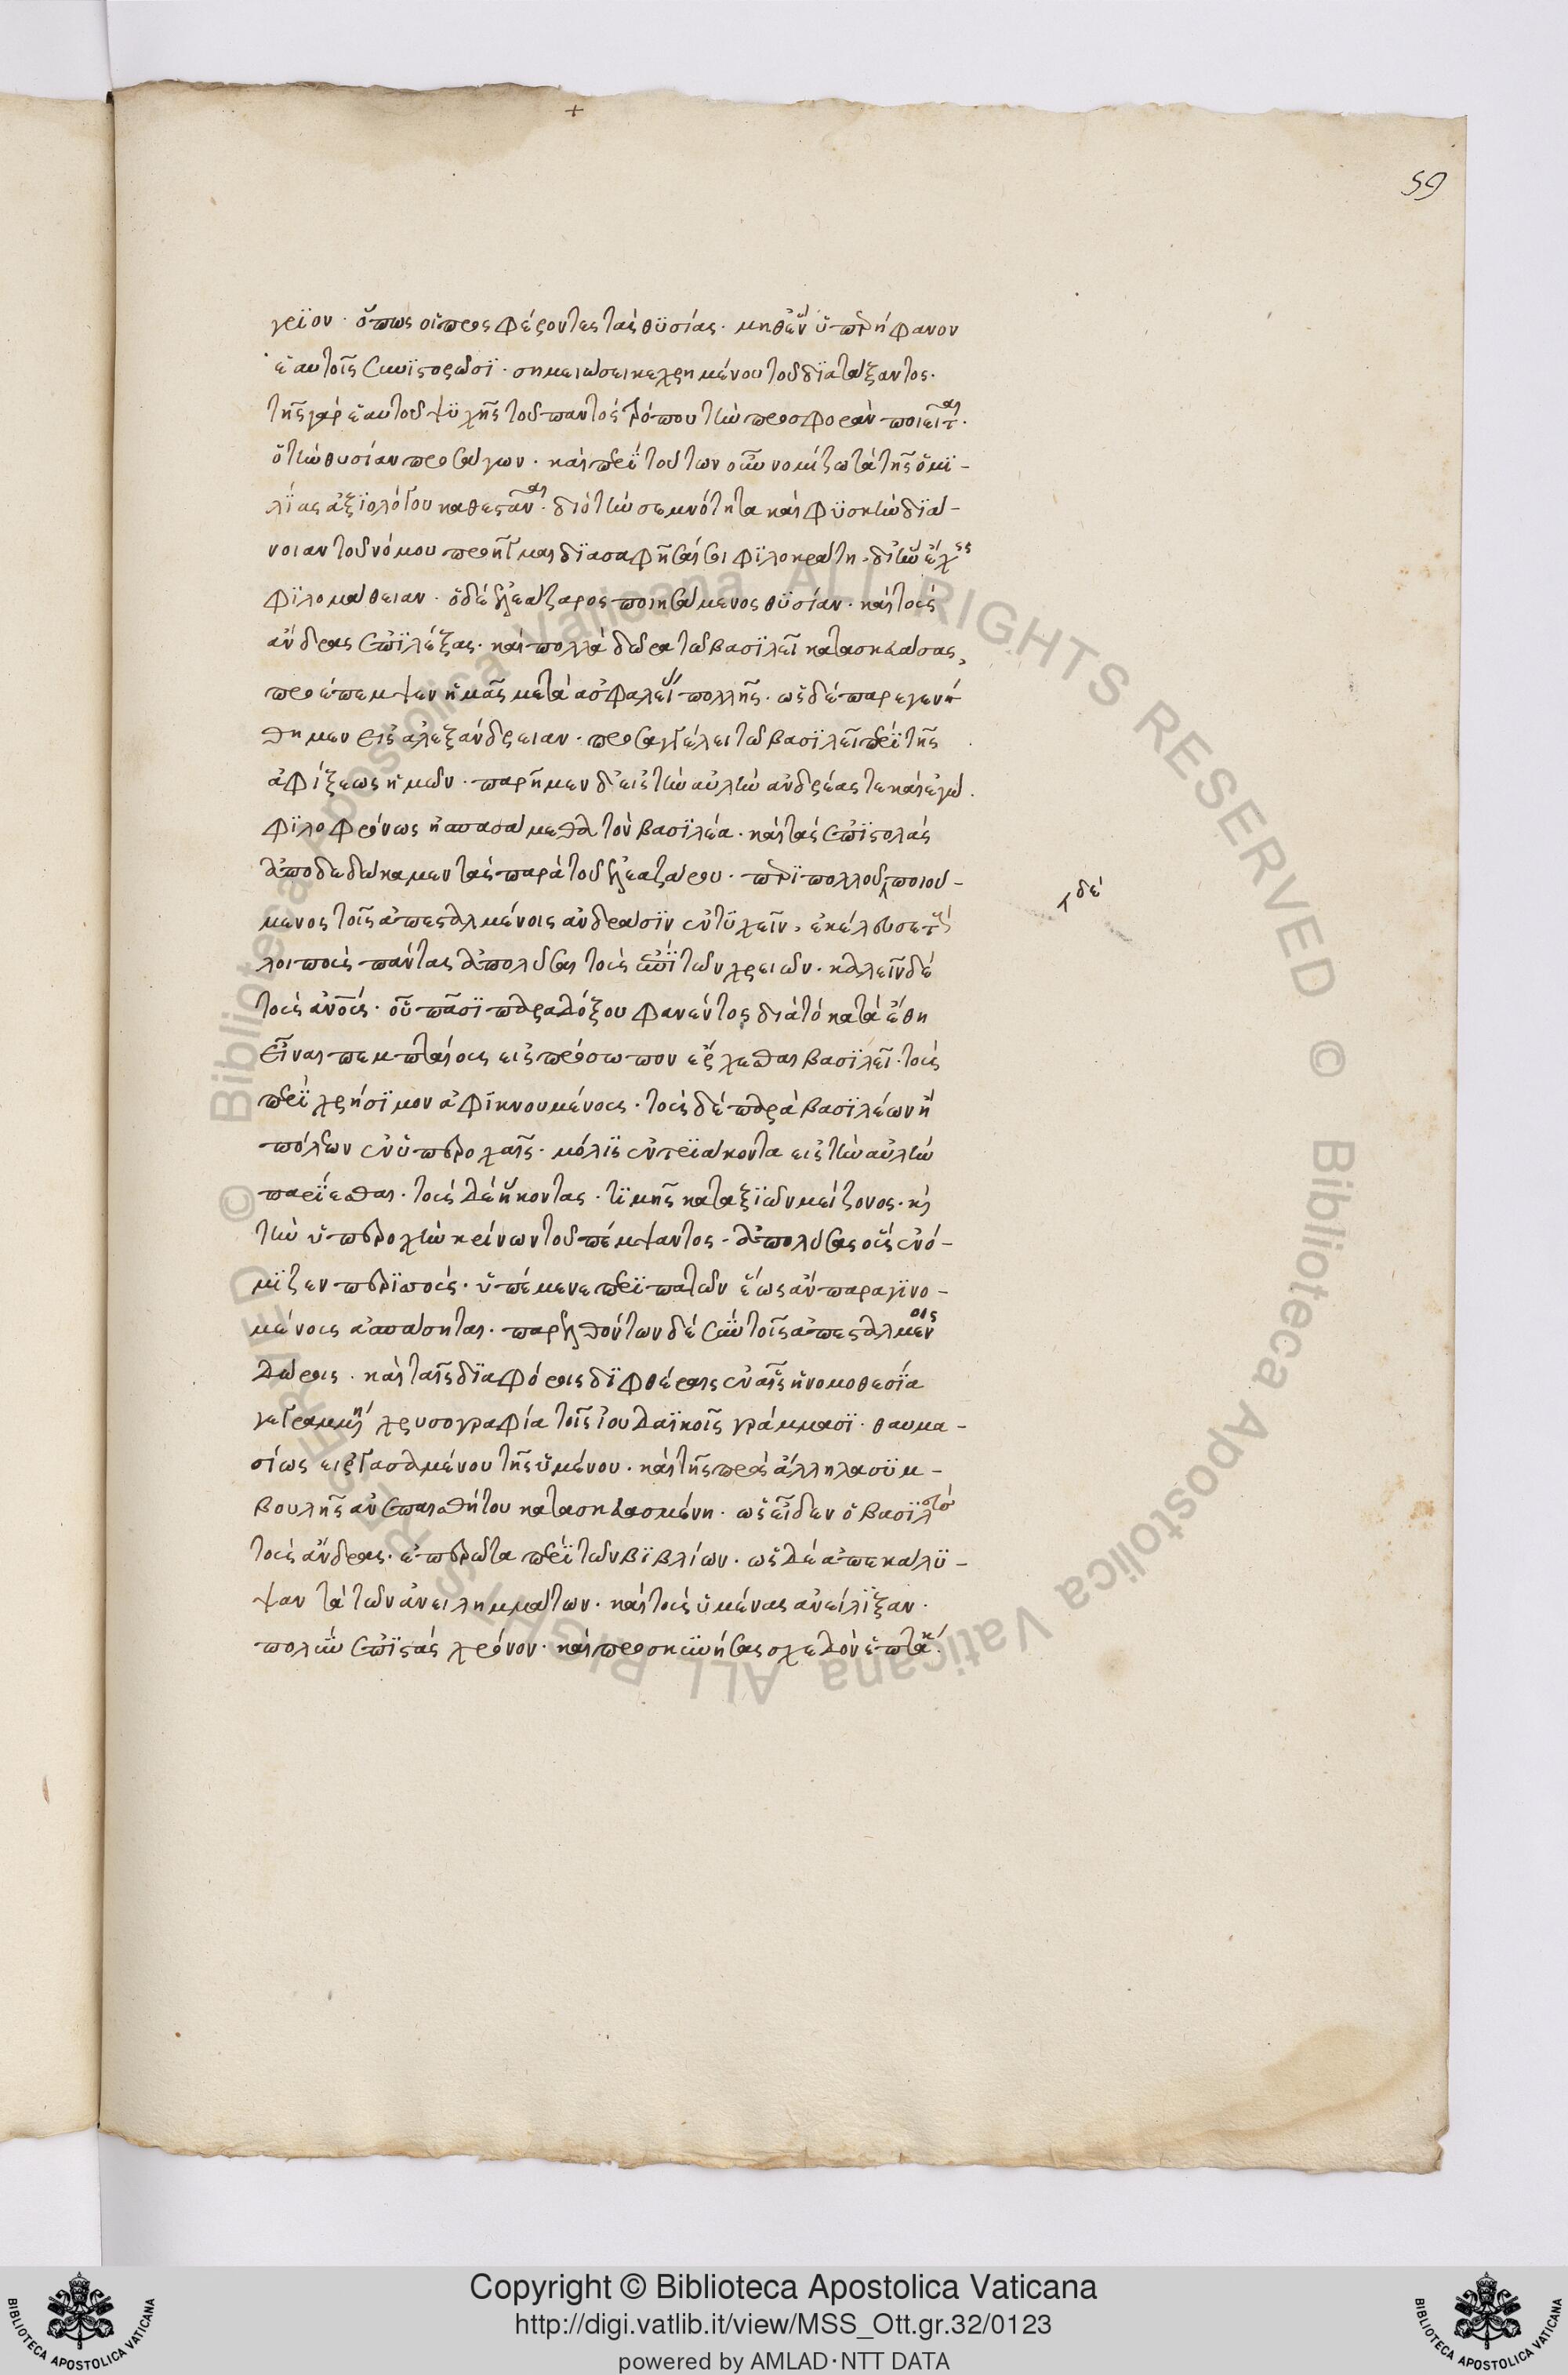 59
γεϊον · ὅπως οἱ προσφέροντες τὰς θυσίας · μηθὲν ὑπερήφανον
ἑαυτοῖς συνϊστορῶσι · σημειώσει κεχρημένου τοῦ διατάξαντος ·
τῆς γὰρ ἑαυτοῦ ψυχῆς τοῦ παντὸς τρόπου τὴν προσφορὰν ποιεῖται ·
ὁ τὴν θυσίαν προσάγων · καὶ περὶ τούτων οὖν νομίζω τὰ τῆς ὁμι-
λίας ἀξιολόγου καθεσταναι · διὸ τὴν σεμνότητα καὶ φυσικὴν διά-
νοιαν τοῦ νόμου προῆγμαι διασαφῆσαί σοι φιλοκράτη · δι' ἣν ἔχεις
φιλομάθειαν · ὁ δὲ ἐλεάζαρος ποιησάμενος θυσίαν · καὶ τοὺς
ἄνδρας ἐπιλέξας · καὶ πολλὰ δῶρα τῶ βασιλεῖ κατασκευάσας,
προέπεμψεν ἡμᾶς μετὰ ἀσφαλείας πολλῆς · ὡς δὲ παρεγενή
θημεν εἰς ἀλεξάνδρειαν · προσαγγέλει τῶ βασιλεῖ περὶ τῆς
ἀφίξεως ἡμῶν · παρῆμεν δ' εἰς τὴν αὐλὴν ἀνδρέας τε καὶ ἐγώ ·
φιλοφρόνως ἠσπασάμεθα τὸν βασιλέα · καὶ τὰς ἐπιστολὰς
ἀποδεδώκαμεν τὰς παρὰ τοῦ ἐλεαζάρου · περὶ πολλοῦ ποιού-
δὲ
μενος τοῖς ἀπεσταλμένοις ἀνδράσιν ἐντυχεῖν, ἐκέλευσε τοὺς
λοιποὺς πάντας ἀπολῦσαι τοὺς ἐπὶ τῶν χρειῶν · καλεῖν δὲ
τοὺς ἀνοὺς · οὗ πᾶσι παραδόξου φανέντος διὰ τὸ κατὰ ἔθη
εἶναι πεμπταίους εἰς πρόσωπον ἔρχεσθαι βασιλεῖ · τοὺς
περὶ χρήσιμον ἀφικνουμένους · τοὺς δὲ παρὰ βασιλέων ἢ
πόλεων ἐν ὑπεροχαῖς · μόλις ἐν τριάκοντα εἰς τὴν αὐλὴν
παρίεσθαι · τοὺς δὲ ἥκοντας · τιμῆς καταξιῶν μείζονος · καὶ
τὴν ὑπεροχὴν κρίνων τοῦ πέμψαντος · ἀπολύσας οὓς ἐνό-
μιζεν περισσοὺς · ὑπέμενε περιπατῶν ἕως ἂν παραγινο-
μένους ἀσπάσηται · παρελθόντων δὲ σὺν τοῖς ἀπεσταλμένοις
δώροις · καὶ ταῖς διαφόροις διφθέραις ἐν αἷς ἡ νομοθεσία
γεγραμμένη χρυσογραφία τοῖς ἰουδαϊκοῖς γράμμασι · θαυμα-
σίως εἰργασμένου τῆς ὑμένου · καὶ τῆς πρὸς ἄλληλα συμ-
βουλῆς ἀνεπαισθήτου κατασκευασμένη · ὡς εἶδεν ὁ βασιλεὺς
τοὺς ἄνδρας · ἐπερώτα περὶ τῶν βιβλίων · ὡς δὲ ἀπεκάλυ-
ψαν τὰ τῶν ἀνειλημμάτων · καὶ τοὺς ὑμένας ἀνείλιξαν ·
πολὺν ἐπιστὰς χρόνον · καὶ προσκυνήσας σχεδὸν ἑπτάκι ·
Copyright © Biblioteca Apostolica Vaticana
http://digi.vatlib.it/view/MSS_Ott.gr.32/0123
powered by AMLAD·NTT DATA
BIBLIOTECA APOSTOLICA VATICANA
BIBLIOTECA APOSTOLICA VATICANA
© Biblioteca Apostolica Vaticana ALL RIGHTS RESERVED
© Biblioteca Apostolica Vaticana ALL RIGHTS RESERVED